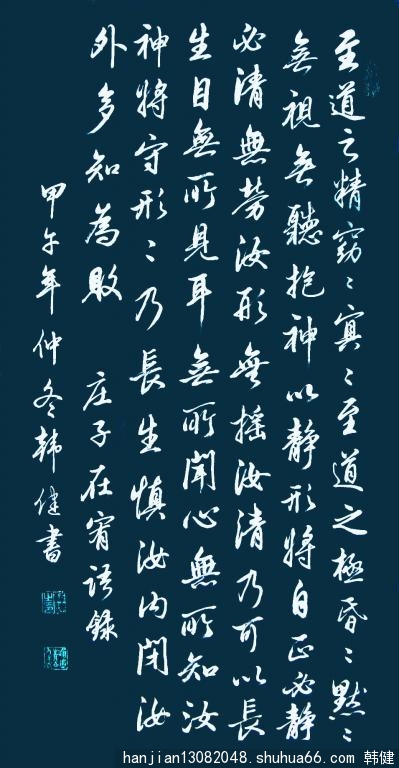 至道之精窈〻冥〻至道之極昏〻默〻
無視無聽抱神以靜形將自正必靜
必清無勞汝形無搖汝清乃可以長
生目無所見耳無所聞心無所知汝
神將守形〻乃長生慎汝内閉汝
外多知為敗 庄子在宥语錄
甲午年仲冬韩健書
hanjian13082048.shuhua66.com 韩健